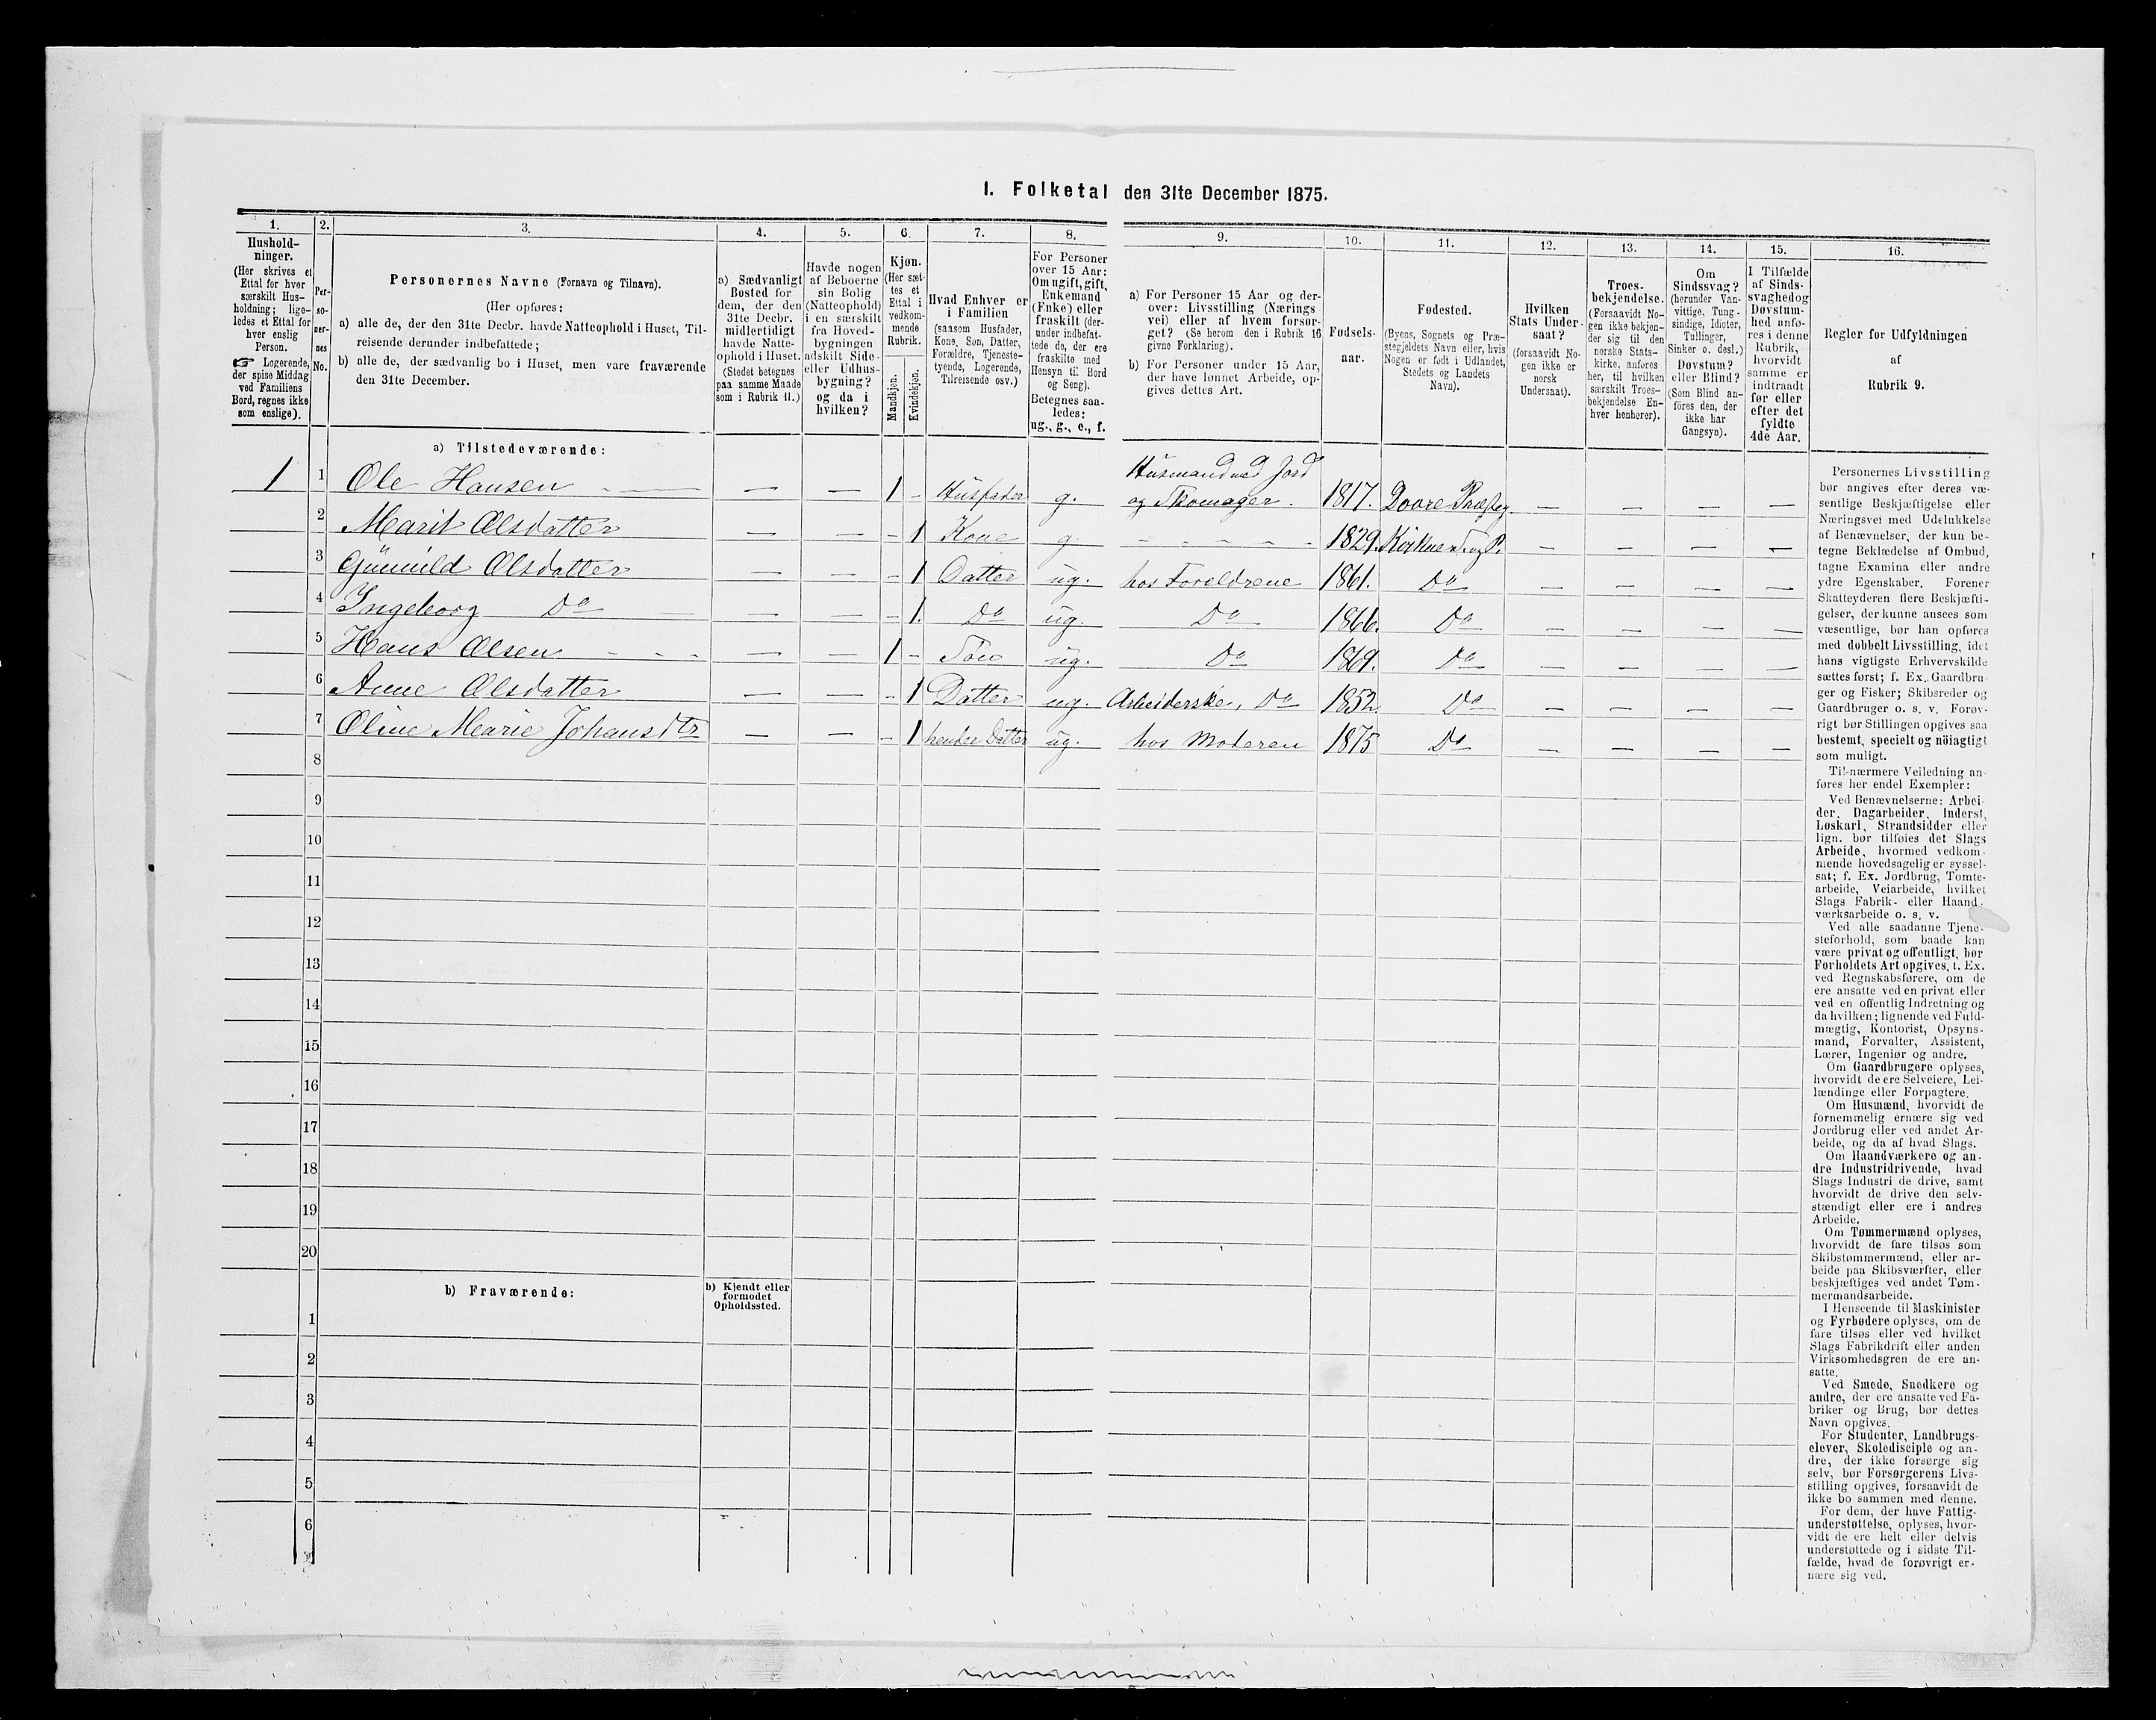 I. Folketal den 31te December 1875.
1. 2. 3. 4. 5. 6. 7. 8. 9. 10. 11. 12. 13. 14. 15. 16.
Hushold-
ninger.
(Her skrives et
Ettal for hver
særskilt Hus-
holdning; lige-
ledes et Ettal for
hver enslig
Person.
☞ Logerende,
der spise Middag
ved Familiens
Bord, regnes ikke
som enslige).
Per-
so-
ner-
nes
No.
Personernes Navne (Fornavn og Tilnavn).
(Her opføres:
a) alle de, der den 31te Decbr. havde Natteophold i Huset, Til-
reisende derunder indbefattede;
b) alle de, der sædvanlig bo i Huset, men vare fraværende
den 31te December.
a) Sædvanligt
Bosted for
dem, der den
31te Decbr.
midlertidigt
havde Natte-
ophold i Huset.
(Stedet betegnes
paa samme Maade
som i Rubrik 11.)
Havde nogen
af Beboerne
sin Bolig
(Natteophold)
i en særskilt
fra Hoved-
bygningen
adskilt Side-
eller Udhus-
bygning?
og da i
hvilken?
Kjøn.
(Her sæt-
tes et
Ettal i
vedkom-
mende
Rubrik.
Mandkjøn.
Kvindekjøn.
Hvad Enhver er
i Familien
(saasom Husfader,
Kone, Søn, Datter,
Forældre, Tjeneste-
tyende, Logerende,
Tilreisende osv.)
For Personer
over 15 Aar:
Om ugift, gift,
Enkemand
(Enke) eller
fraskilt (der-
under indbefat-
tede de, der ere
fraskilte med
Hensyn til Bord
og Seng).
Betegnes saa-
ledes:
ug., g., e., f.
a) For Personer 15 Aar og der-
over: Livsstilling (Nærings
vei) eller af hvem forsør-
get? (Se herom den i Rubrik 16
givne Forklaring).
b) For Personer under 15 Aar,
der have lønnet Arbeide, op-
gives dettes Art.
Fødsels-
aar.
Fødested.
(Byens, Sognets og Præ-
stegjeldets Navn eller, hvis
Nogen er født i Udlandet,
Stedets og Landets
Navn).
Hvilken
Stats Under-
saat?
(forsaavidt No-
gen ikke er
norsk
Undersaat).
Troes-
bekjendelse.
(Forsaavidt No-
gen ikke bekjen-
der sig til den
norske Stats-
kirke, anføres
her, til hvilken
særskilt Troes-
bekjendelse En-
hver henhører).
Om
Sindssvag?
(herunder Van-
vittige, Tung-
sindige, Idioter,
Tullinger,
Sinker o. desl.)
Døvstum?
eller Blind?
(Som Blind an-
føres den, der
ikke har
Gangsyn).
I Tilfælde
af Sinds-
svaghedog
Døvstum-
hed anfø-
res i denne
Rubrik,
hvorvidt
samme er
indtraadt
før eller
efter det
fyldte
4de Aar.
Regler for Udfyldningen
af
Rubrik 9.
a) Tilstedeværende:
1 1 Ole Hansen — — 1 - Husfader g. Husmand med Jord og Skomager. 1817. Dovre Præsteg. — — — —
2 Marit Olsdatter — — - 1 Kone g - - - - - 1829. — — — —
3 Gunnild Olsdatter — — - 1 Datter ug. hos Foreldrene 1861. Do — — — —
4 Ingeborg Do — — - 1. Do ug. Do 1866. Do — — — —
5 Hans Olsen - - - — — 1 - Søn ug. Do 1869. Do — — — —
6 Anne Olsdatter — — - 1 Datter ug. Arbeiderske, Do 1852. Do — — — —
7 Oline Marie Johansdtr — — - 1 hendes Datter ug. hos Moderen 1875 Do — — — —
8
9
10
11
12
13
14
15
16
17
18
19
20
b) Fraværende:
b) Kjendt eller
formodet
Opholdssted.
1
2
3
4
5
6
Personernes Livsstilling
bør angives efter deres væ-
sentlige Beskjæftigelse eller
Næringsvei med Udelukkelse
af Benævnelser, der kun be-
tegne Beklædelse af Ombud,
tagne Examina eller andre
ydre Egenskaber. Forener
Skatteyderen flere Beskjæfti-
gelser, der kunne ansees som
væsentlige, bør han opføres
med dobbelt Livsstilling, idet
hans vigtigste Erhvervskilde
sættes først; f. Ex. Gaardbru-
ger og Fisker; Skibsreder og
Gaardbruger o. s. v. Forøv-
rigt bør Stillingen opgives saa
bestemt, specielt og nöiagtigt
som muligt.
Til nærmere Veiledning an-
føres her endel Exempler:
Ved Benævnelserne: Arbei-
der, Dagarbeider, Inderst,
Løskarl, Strandsidder eller
lign. bør tilføies det Slags
Arbeide, hvormed vedkom-
mende hovedsagelig er syssel-
sat; f. Ex. Jordbrug, Tomte-
arbeide, Veiarbeide, hvilket
Slags Fabrik- eller Haand-
værksarbeide o. s. v.
Ved alle saadanne Tjene-
steforhold, som baade kan
være privat og offentligt, bør
Forholdets Art opgives, t. Ex.
ved Regnskabsførere, om de
ere ansatte ved en privat eller
ved en offentlig Indretning og
da hvilken; lignende ved Fuld-
mægtig, Kontorist, Opsyns-
mand, Forvalter, Assistent,
Lærer, Ingeniør og andre.
Om Gaardbrugere oplyses,
hvorvidt de ere Selveiere, Lei-
lændinge eller Forpagtere.
Om Husmænd, hvorvidt de
fornemmelig ernære sig ved
Jordbrug eller ved andet Ar-
beide, og da af hvad Slags.
Om Haandværkere og an-
dre Industridrivende, hvad
Slags Industri de drive, samt
hvorvidt de drive den selv-
stændigt eller ere i andres
Arbeide.
Om Tømmermænd oplyses,
hvorvidt de fare tilsøs som
Skibstømmermænd, eller ar-
beide paa Skibsværfter, eller
beskjæftiges ved andet Tøm-
mermandsarbeide.
I Henseende til Maskinister
og Fyrbødere oplyses, om de
fare tilsøs eller ved hvilket
Slags Fabrikdrift eller anden
Virksomhedsgren de ere an-
satte.
Ved Smede, Snedkere og
andre, der ere ansatte ved Fa-
briker og Brug, bør dettes
Navn opgives.
For Studenter, Landbrugs-
elever, Skoledisciple og an-
dre, der ikke forsørge sig
selv, bør Forsørgerens Livs-
stilling opgives, forsaavidt de
ikke bo sammen med denne.
For dem, der have Fattig-
understøttelse, oplyses, hvor-
vidt de ere helt eller delvis
understøttede og i sidste Til-
fælde, hvad de forøvrigt er-
nære sig ved.